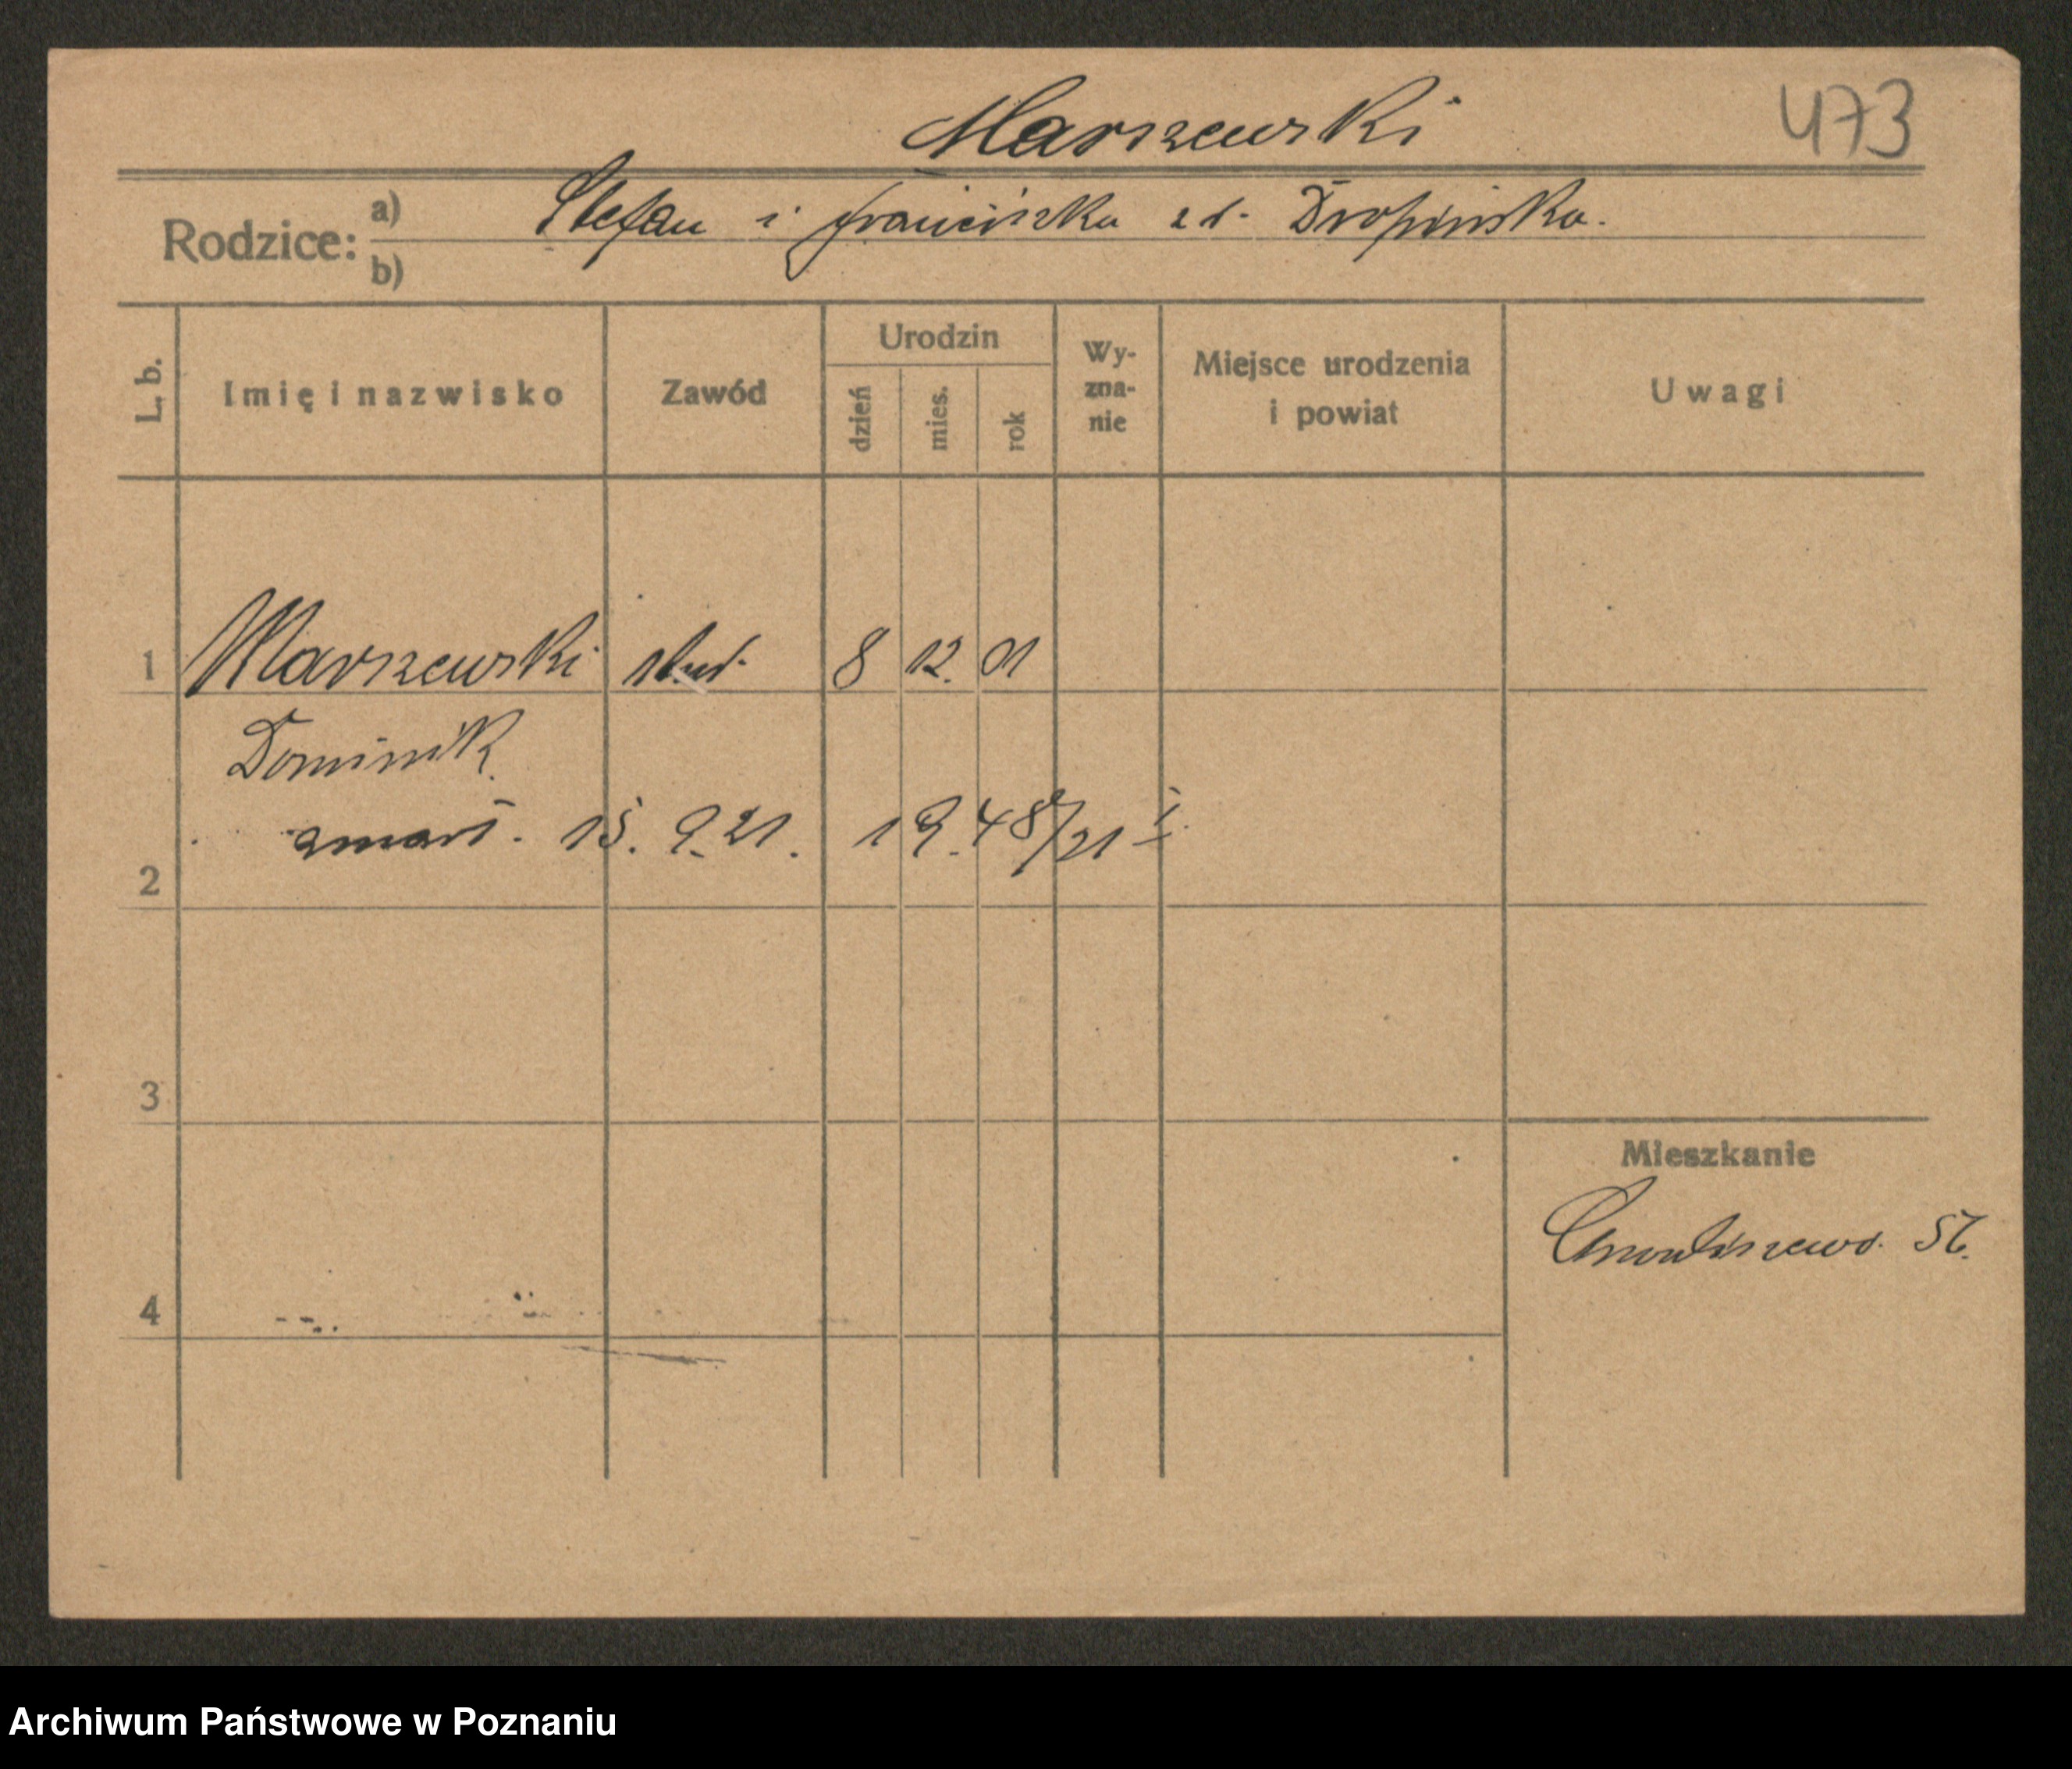 Marszewski 473
Rodzice: a) Stefan i Franciszka zd. Dropińska.
b)
L. b.
Imię i nazwisko
Zawód
Urodzin
dzień
mies.
rok
Wy-
zna-
nie
Miejsce urodzenia
i powiat
Uwagi
1 Marszewski stud. 8 12. 01
Dominik
zmarł. 15. 9. 21. 1948/21 I.
2
3
Mieszkanie
Chwaliszewo. 56.
4
Archiwum Państwowe w Poznaniu